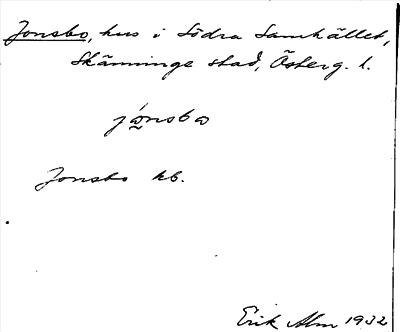 Jonsbo, hus i Södra Samhället,
Skänninge stad, Österg. l.
jónsbω
Jonsbo kb.
Erik Alm 1932